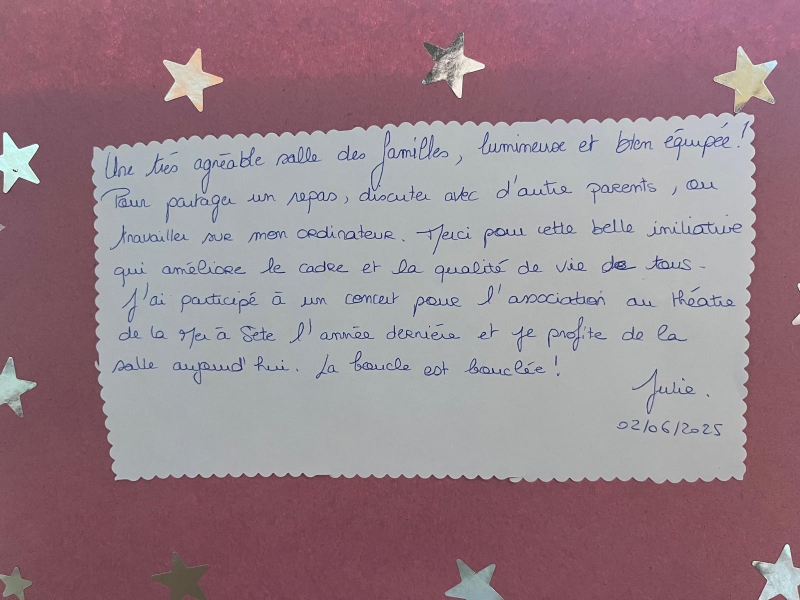 Une très agréable salle des familles, lumineuse et bien équipée !
Pour partager un repas, discuter avec d'autre parents, ou
travailler sur mon ordinateur. Merci pour cette belle initiative
qui améliore le cadre et la qualité de vie de tous.
J'ai participé à un concert pour l'association au théatre
de la Mer à Sète l'année dernière et je profite de la
salle aujourd'hui. La boucle est bouclée !
Julie.
02/06/2025